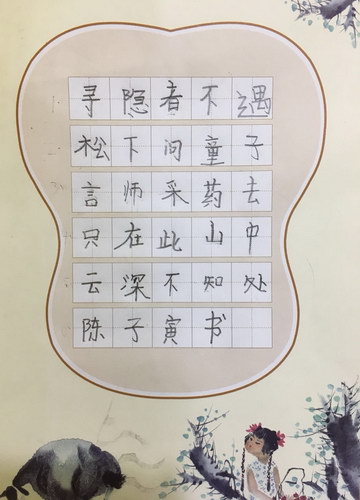 寻隐者不遇
松下问童子
言师采药去
只在此山中
云深不知处
陈子寅书